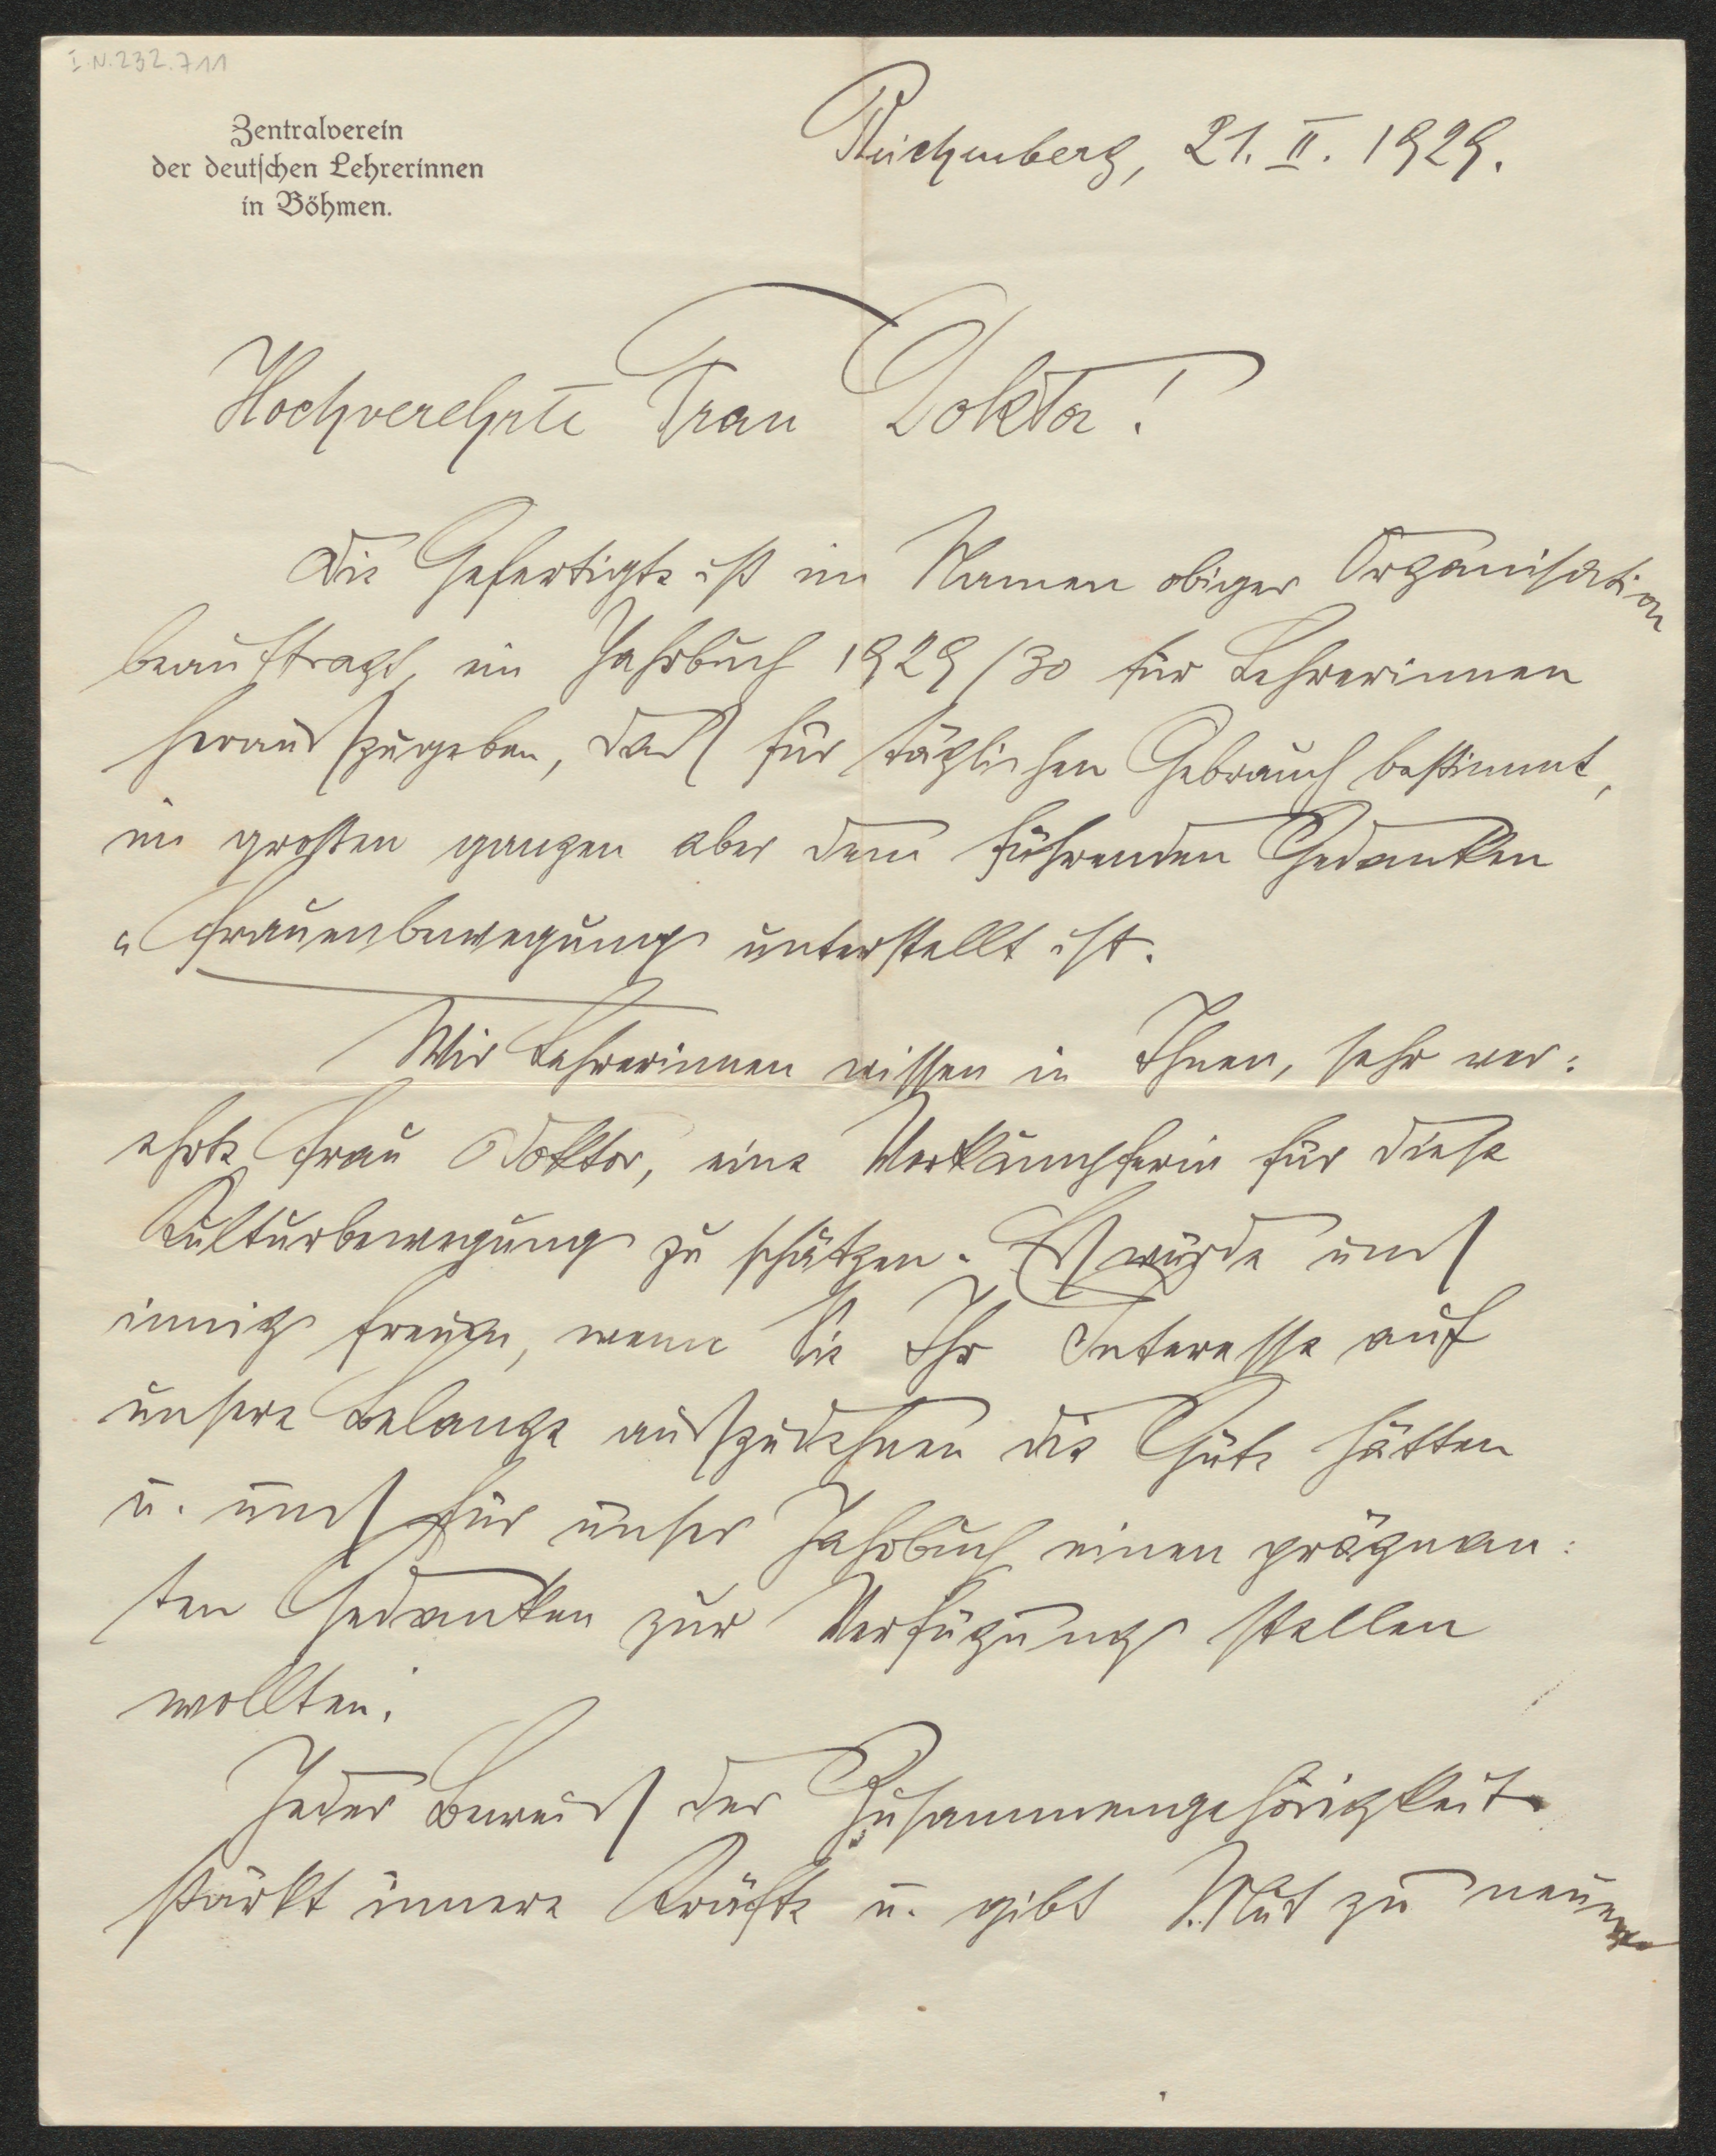 I.N.232.711
Zentralverein
der deutschen Lehrerinnen
in Böhmen.
Reichenberg, 21. II. 1929.
Hochverehrte Frau Doktor!
Die Gefertigte ist im Namen obiger Organisation
beauftragt, ein Jahrbuch 1929/30 für Lehrerinnen
herauszugeben, das für täglichen Gebrauch bestimmt,
im großen ganzen aber dem führenden Gedanken
"Frauenbewegung unterstellt ist.
Wir Lehrerinnen wissen in Ihnen, sehr ver:
ehrte Frau Doktor, eine Vorkämpferin für diese
Kulturbewegung zu schätzen. Es würde uns
innig freuen, wenn Sie Ihr Interesse auf
unsere Belange auszudehnen die Güte hätten
u. uns für unser Jahrbuch einen prägnan:
ten Gedanken zur Verfügung stellen
wollten.
Jeder Beweis der Zusammengehörigkeit
stärkt innere Kräfte u. gibt Mut zu neuen